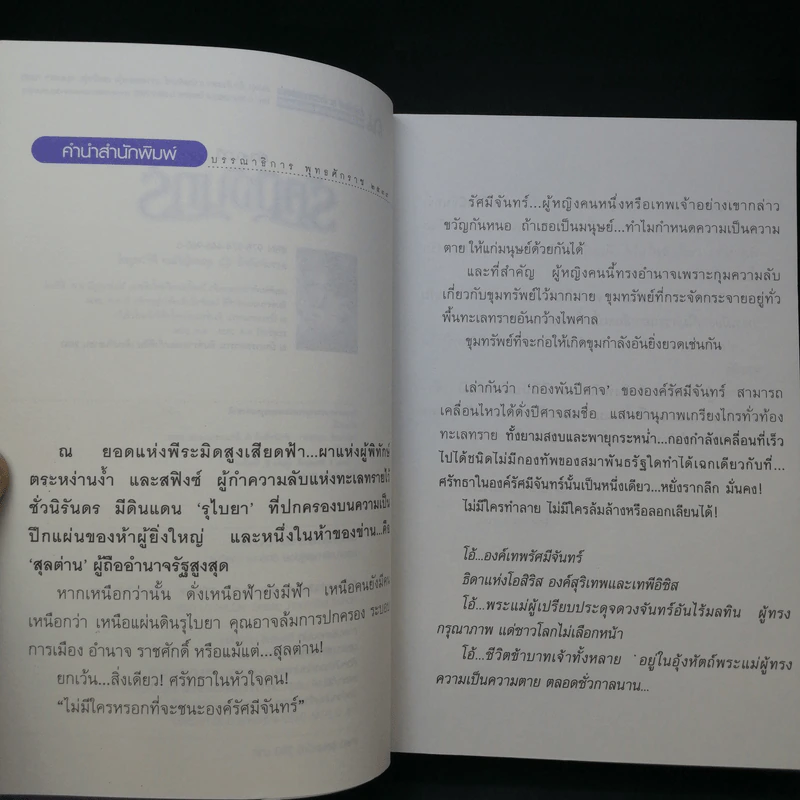 คำนำสำนักพิมพ์
บรรณาธิการ พุทธศักราช
ณ ยอดแห่งพีระมิดสูงเสียดฟ้า...ผาแห่งผู้พิทักษ์
ตระหง่านง้ำ และสฟิงซ์ ผู้กำความลับแห่งทะเลทรายไว้
ชั่วนิรันดร มีดินแดน ‘รุไบยา’ ที่ปกครองบนความเป็น
ปึกแผ่นของห้าผู้ยิ่งใหญ่ และหนึ่งในห้าของข่าน...คือ
‘สุลต่าน’ ผู้ถืออำนาจรัฐสูงสุด
หากเหนือกว่านั้น ดั่งเหนือฟ้ายังมีฟ้า เหนือคนยังมีคน
เหนือกว่า เหนือแผ่นดินรุไบยา คุณอาจล้มการปกครอง ระบอบ
การเมือง อำนาจ ราชศักดิ์ หรือแม้แต่...สุลต่าน!
ยกเว้น...สิ่งเดียว! ศรัทธาในหัวใจคน!
“ไม่มีใครหรอกที่จะชนะองค์รัศมีจันทร์”
รัศมีจันทร์...ผู้หญิงคนหนึ่งหรือเทพเจ้าอย่างเขากล่าว
ขวัญกันหนอ ถ้าเธอเป็นมนุษย์...ทำไมกำหนดความเป็นความ
ตาย ให้แก่มนุษย์ด้วยกันได้
และที่สำคัญ ผู้หญิงคนนี้ทรงอำนาจเพราะกุมความลับ
เกี่ยวกับขุมทรัพย์ไว้มากมาย ขุมทรัพย์ที่กระจัดกระจายอยู่ทั่ว
พื้นทะเลทรายอันกว้างไพศาล
ขุมทรัพย์ที่จะก่อให้เกิดขุมกำลังอันยิ่งยวดเช่นกัน
เล่ากันว่า ‘กองพันปีศาจ’ ขององค์รัศมีจันทร์ สามารถ
เคลื่อนไหวได้ดั่งปีศาจสมชื่อ แสนยานุภาพเกรียงไกรทั่วท้อง
ทะเลทราย ทั้งยามสงบและพายุกระหน่ำ...กองกำลังเคลื่อนที่เร็ว
ไปได้ชนิดไม่มีกองทัพของสมาพันธรัฐใดทำได้เฉกเดียวกับที่...
ศรัทธาในองค์รัศมีจันทร์นั้นเป็นหนึ่งเดียว...หยั่งรากลึก มั่นคง!
ไม่มีใครทำลาย ไม่มีใครล้มล้างหรือลอกเลียนได้!
โอ้...องค์เทพรัศมีจันทร์
ธิดาแห่งโอสิริส องค์สุริเทพและเทพีอิซิส
โอ้...พระแม่ผู้เปรียบประดุจดวงจันทร์อันไร้มลทิน ผู้ทรง
กรุณาภาพ แด่ชาวโลกไม่เลือกหน้า
โอ้...ชีวิตข้าบาทเจ้าทั้งหลาย อยู่ในอุ้งหัตถ์พระแม่ผู้ทรง
ความเป็นความตาย ตลอดชั่วกาลนาน...